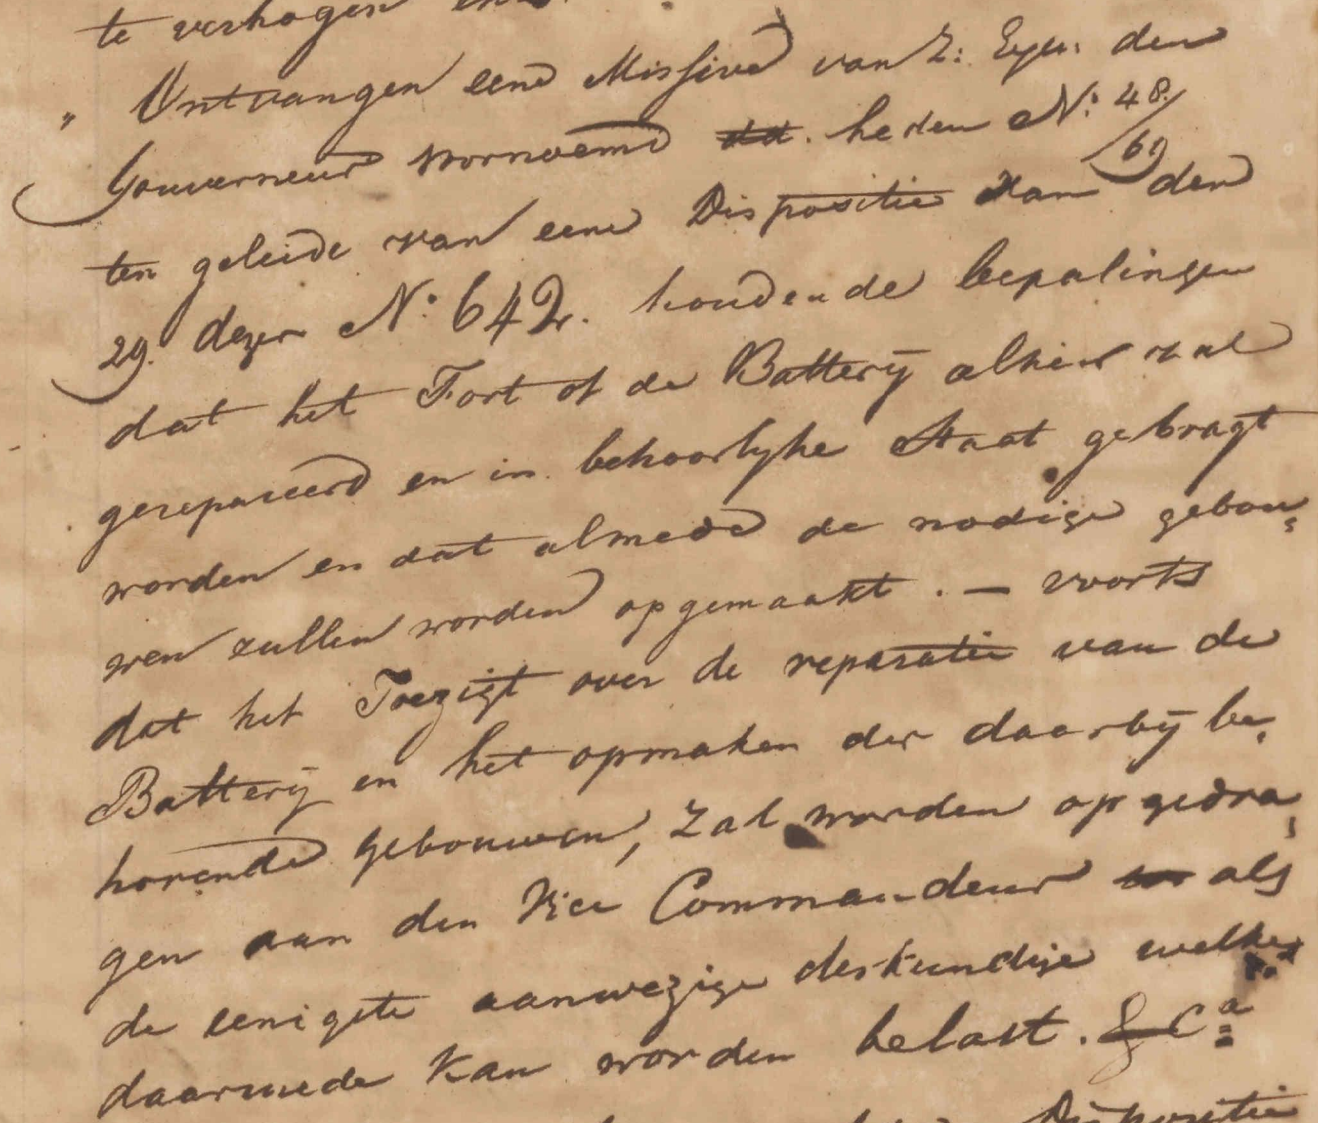 te verhogen
" Ontvangen eene Missive van Z: Exc: den
Gouverneur voornoemd dd. heden N: 48/61
ten geleide van eene Dispositie van den
29 dezer N: 642. houdende bepalingen
dat het Fort of de Batterij alhier zal
gerepareerd en in behoorlyke Staat gebragt
worden en dat almede de nodige gebou=
wen zullen worden opgemaakt. — voorts
dat het Toezigt over de reparatie van de
Batterij en het opmaken der daarbij be=
horende gebouwen, zal worden opgedra=
gen aan den Vice Commandeur als
de eenigste aanwezige deskundige welke
daarmede kan worden belast. &Ca
Dispositie